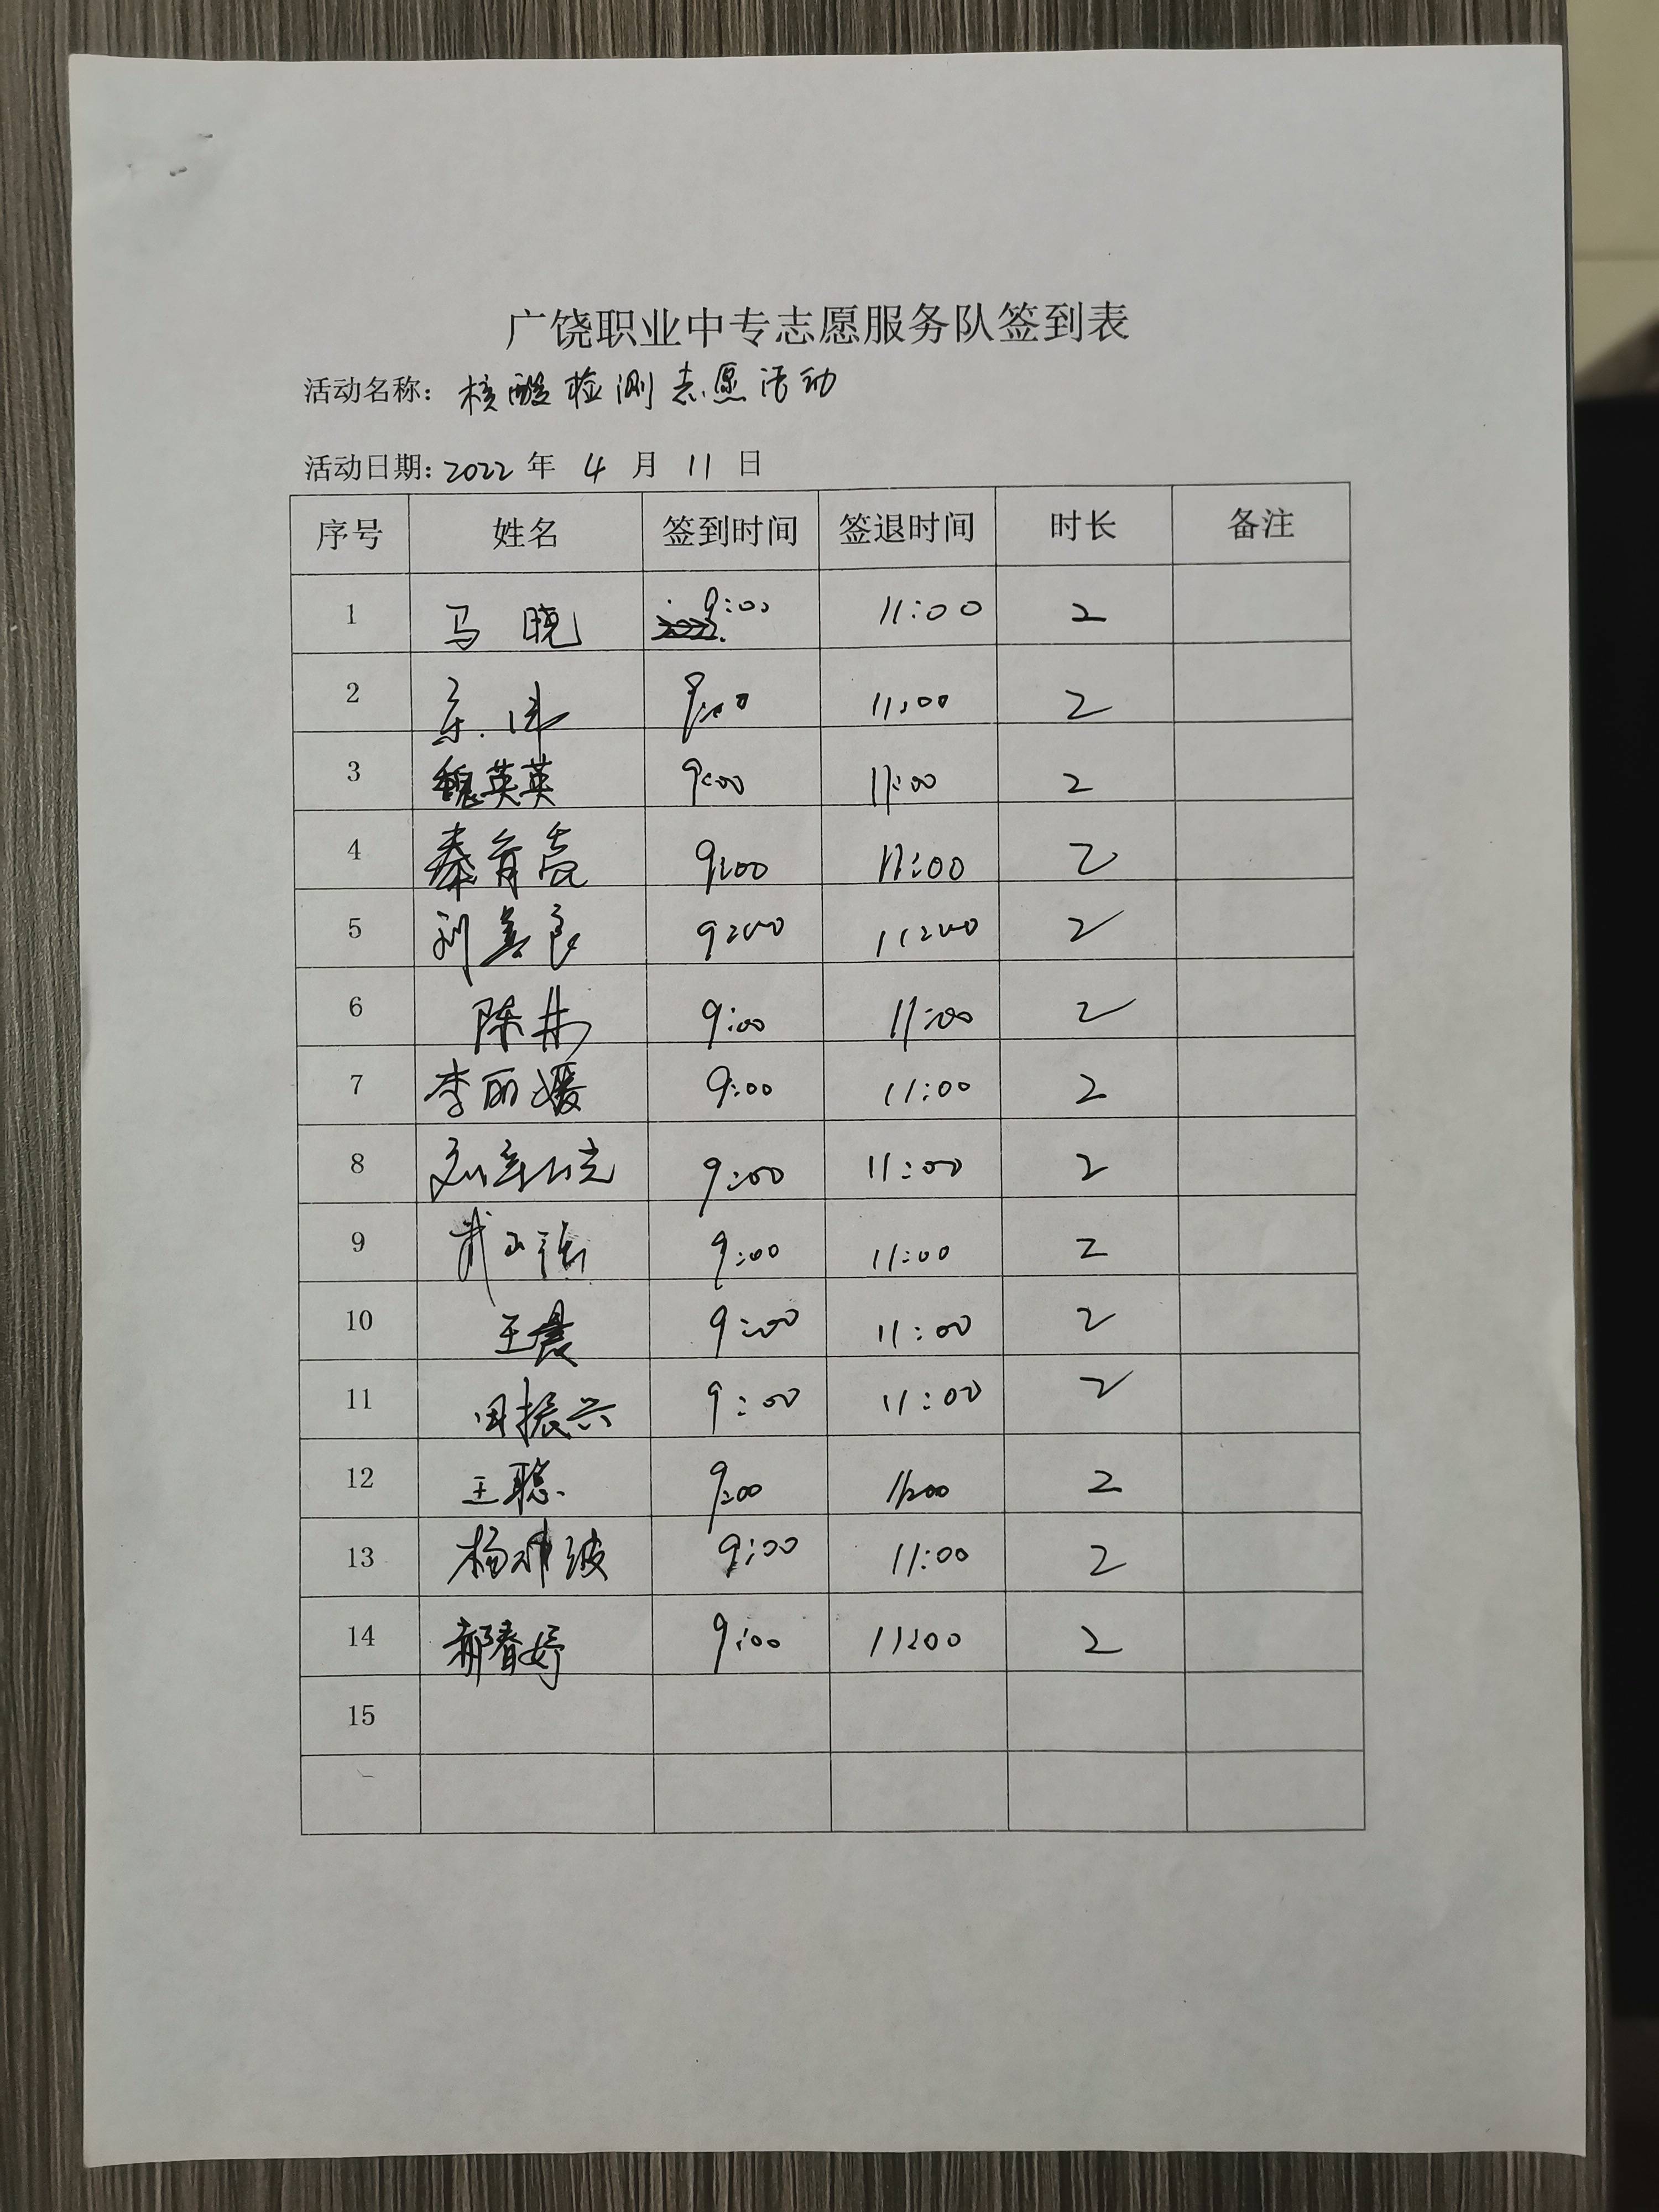 广饶职业中专志愿服务队签到表
活动名称: 核酸检测志愿活动
活动日期: 2022 年 4 月 11 日
序号 姓名 签到时间 签退时间 时长 备注
1 马晓 9:00 11:00 2
2 9:00 11:00 2
3 魏英英 9:00 11:00 2
4 秦育亮 9:00 11:00 2
5 刘善良 9:00 11:00 2
6 陈冉 9:00 11:00 2
7 李丽媛 9:00 11:00 2
8 9:00 11:00 2
9 9:00 11:00 2
10 王晨 9:00 11:00 2
11 田振兴 9:00 11:00 2
12 王聪 9:00 11:00 2
13 杨 波 9:00 11:00 2
14 郝春婷 9:00 11:00 2
15